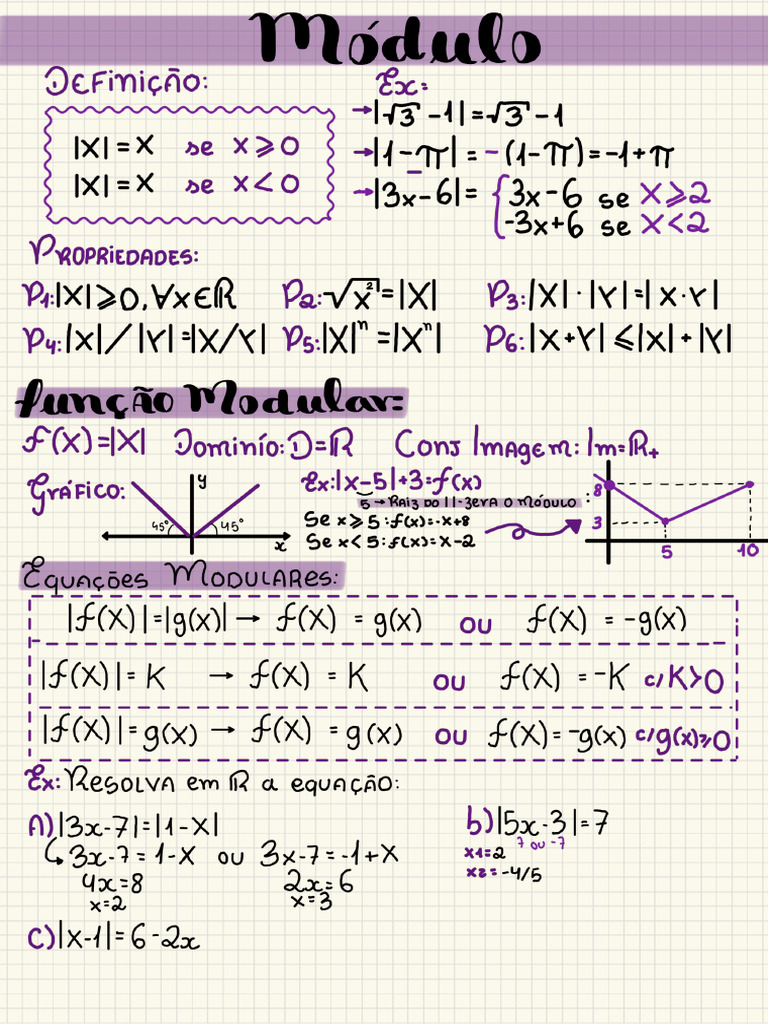 Módulo
Definição:
|X| = X se X ⩾ 0
|X| = X se X < 0
Ex:
→ |√3 - 1| = √3 - 1
→ |1 - π| = - (1 - π) = -1 + π
→ |3x - 6| = { 3x - 6 se X ⩾ 2
-3x + 6 se X < 2
Propriedades:
P1: |X| ⩾ 0, ∀x ∈ ℝ P2: √x² = |X| P3: |X| · |Y| = |X · Y|
P4: |X| / |Y| = |X/Y| P5: |X|ⁿ = |Xⁿ| P6: |X + Y| ⩽ |X| + |Y|
Função Modular:
f(X) = |X| Domínio: D = ℝ Conj Imagem: Im = ℝ+
Gráfico:
y
45° 45°
x
Ex: |x - 5| + 3 = f(x)
5 → Raiz do | | - zera o módulo
Se x ⩾ 5 : f(x) = -x + 8
Se x < 5 : f(x) = x - 2
8
3
5 10
Equações Modulares:
|f(X)| = |g(x)| → f(X) = g(x) ou f(X) = -g(x)
|f(X)| = K → f(X) = K ou f(X) = -K c/ K > 0
|f(X)| = g(x) → f(X) = g(x) ou f(X) = -g(x) c/ g(x) ⩾ 0
Ex: Resolva em ℝ a equação:
A) |3x - 7| = |1 - X|
↳ 3x - 7 = 1 - X ou 3x - 7 = -1 + X
4x = 8 2x = 6
x = 2 x = 3
b) |5x - 3| = 7
7 ou -7
x1 = 2
x2 = -4/5
C) |X - 1| = 6 - 2x